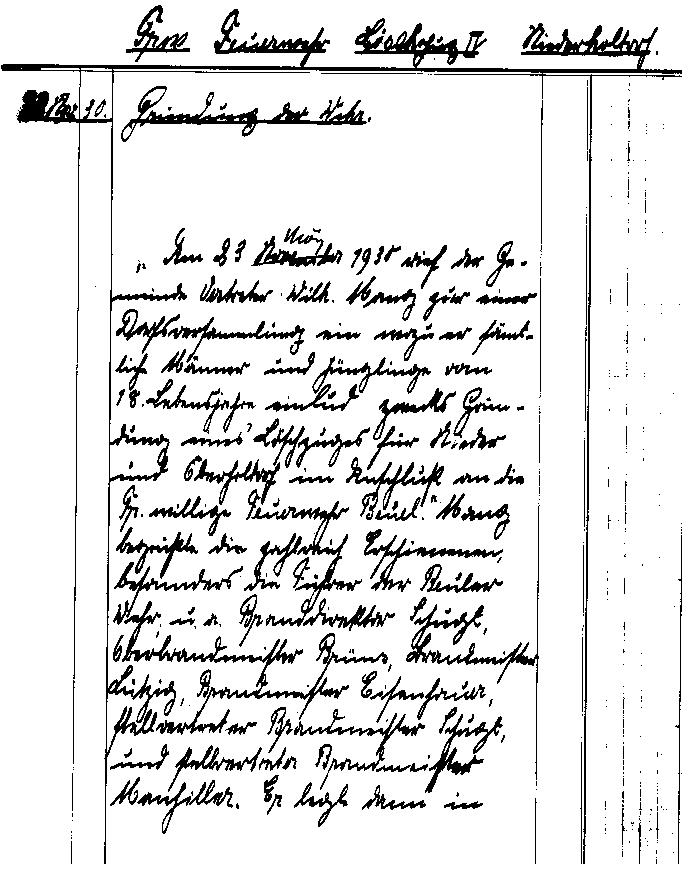 Frw Feuerwehr Löschzug IV Niederholtorf.
Nov 30. Gründung der Wehr.
„Am 23 November Nov 1930 rief der Ge-
meinde Vertreter Wilh. Manz zur einer
Ortsversammlung ein wozu er sämt-
liche Männer und Jünglinge vom
18. Lebensjahre einlud zwecks Grün-
dung eines Löschzuges für Nieder
und Oberholtorf im Anschluß an die
Fr. willige Feuerwehr Beuel." Manz
begrüßte die zahlreich Erschienenen,
besonders die Führer der Beuler
Wehr, u. a. Branddirektor Schugt,
Oberbrandmeister Brüne, Brandmeister
Lützig, Brandmeister Eisenhauer,
stellvertreter Brandmeister Schugt,
und stellvertreter Brandmeister
Manhiller. Er legte dann in